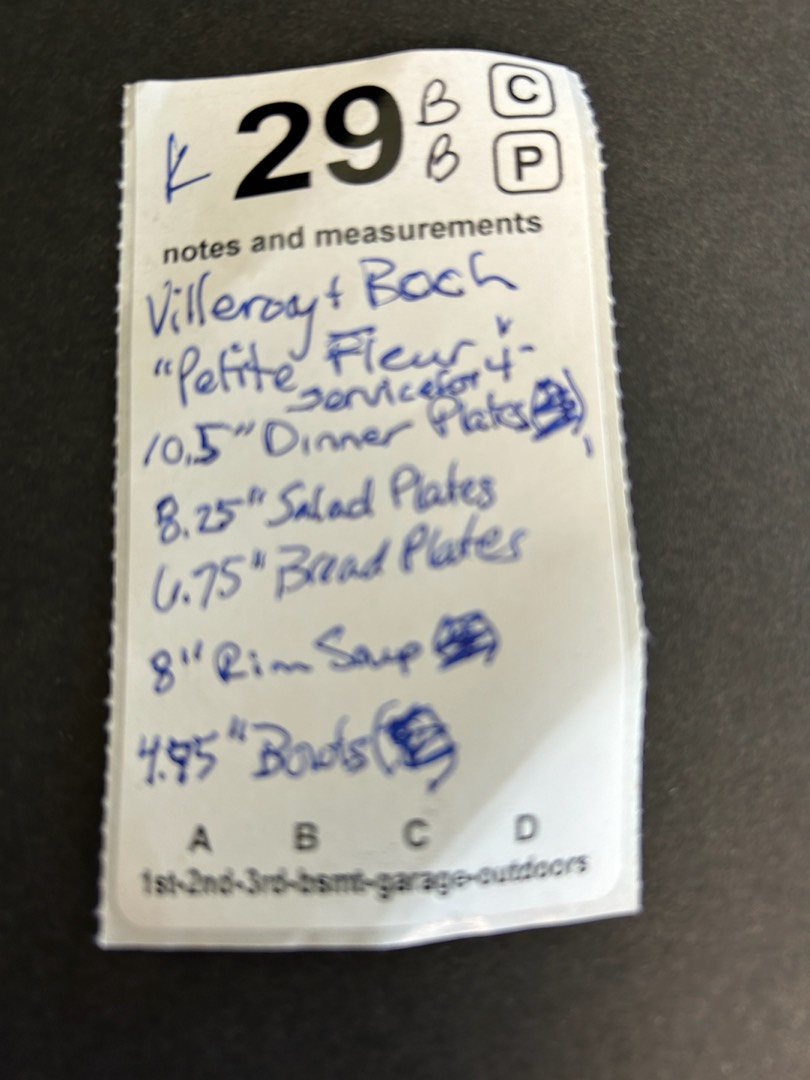 K 29 B C
B P
notes and measurements
Villeroy + Boch
"Petite Fleur
service for 4-
10.5" Dinner Plates
8.25" Salad Plates
6.75" Bread Plates
8" Rim Soup
" Bowls
A B C D
1st-2nd-3rd-bsmt-garage-outdoors